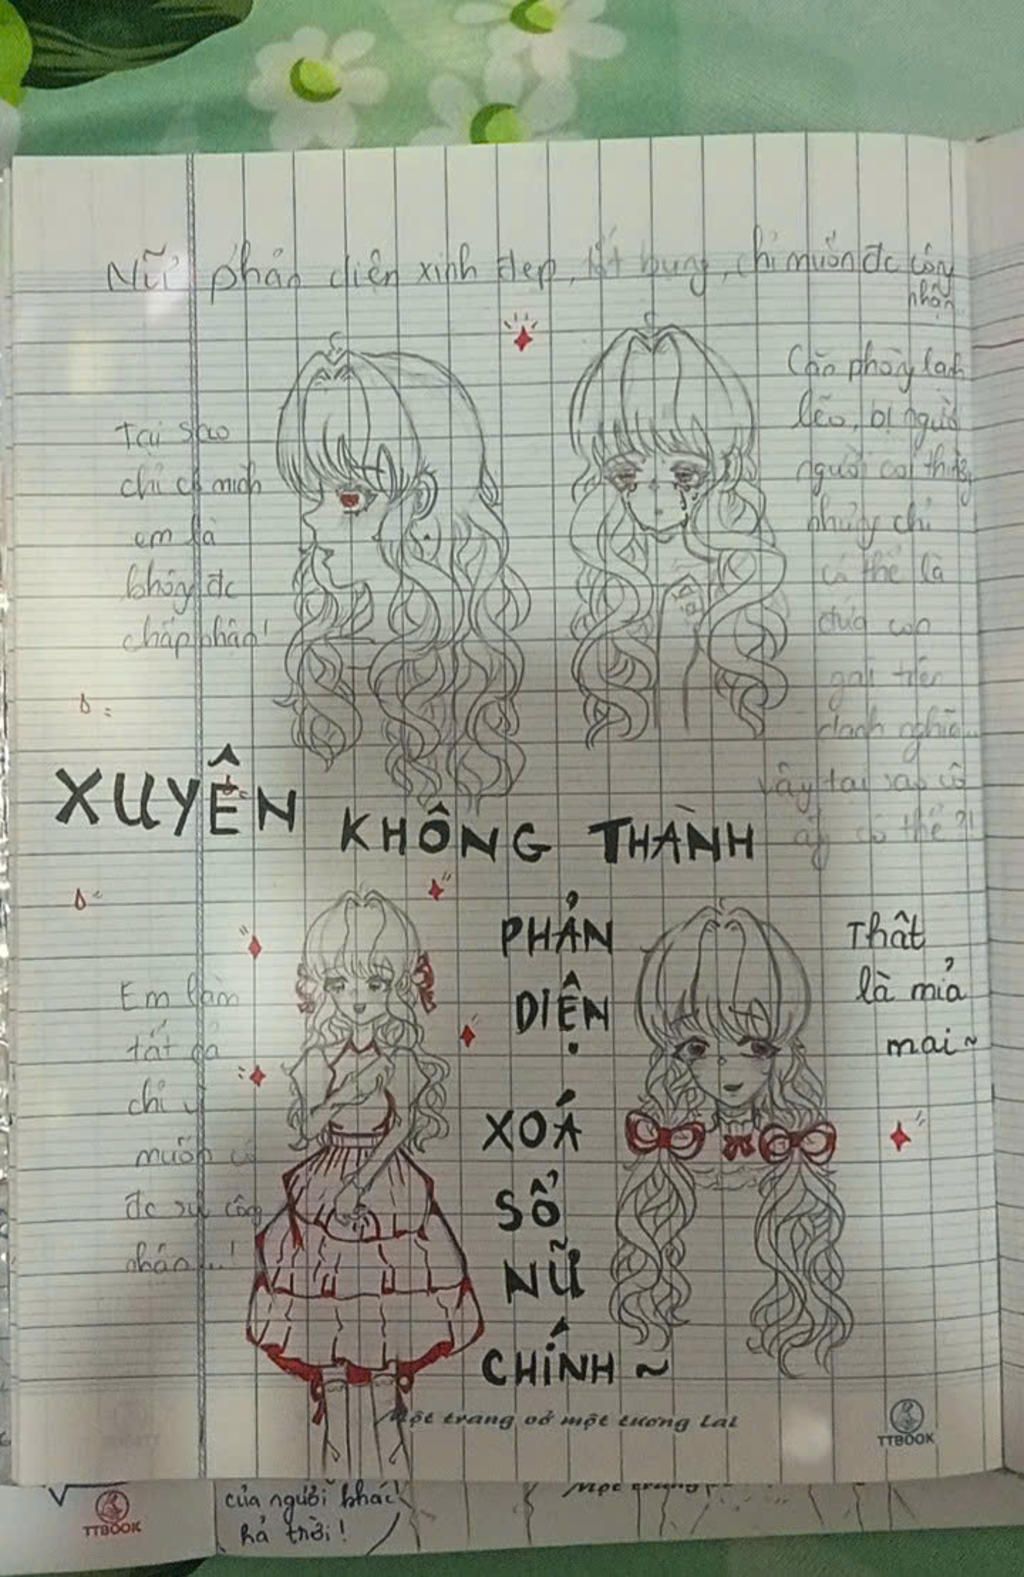 Nữ phản diện xinh đẹp, tốt bụng, chỉ muốn đc công
nhận
Tại sao
chỉ có mình
em là
không đc
chấp nhận!
Căn phòng lạnh
lẽo, bị người
người coi thường
nhưng chỉ
có thể là
đứa con
gái trên
danh nghĩa...
vậy tại sao cô
ấy có thể?!
XUYÊN
KHÔNG THÀNH
PHẢN
DIỆN.
XOÁ
SỔ
NỮ
CHÍNH ~
Em làm
tất cả
chỉ vì
muốn có
đc sự công
nhận...!
Thật
là mỉa
mai ~
Một trang vở một tương lai
TTBOOK
TTBOOK
của người khác!
hả trời!